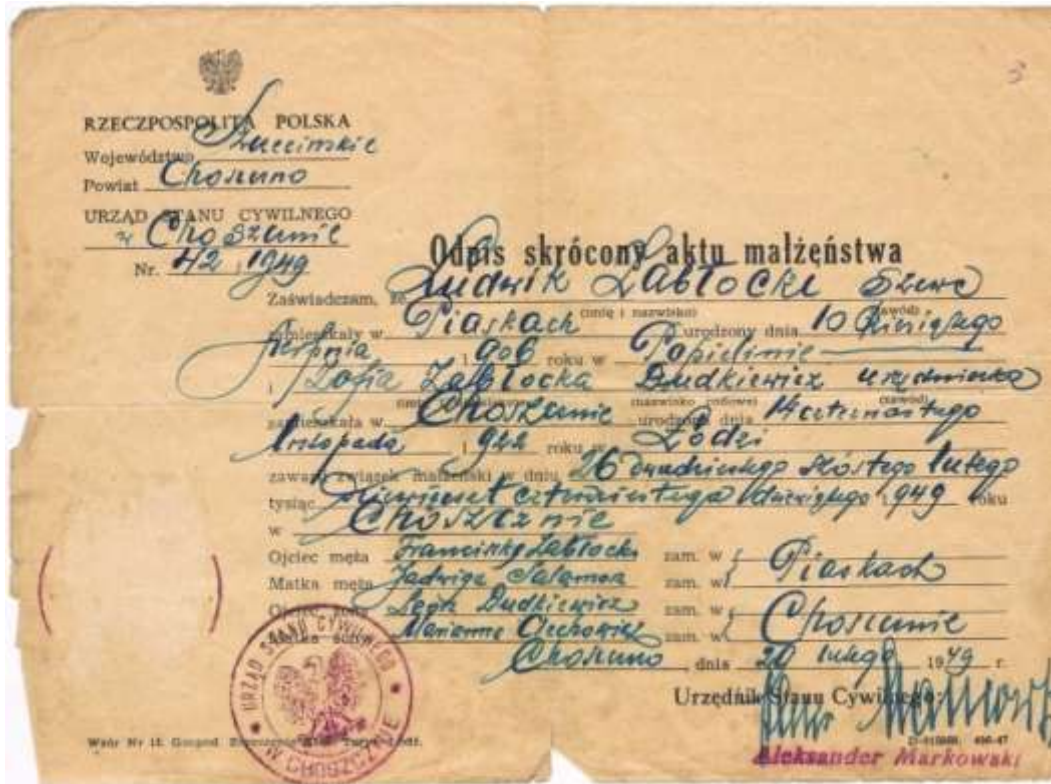 RZECZPOSPOLITA POLSKA
Województwo Szczecińskie
Powiat Choszczno
URZĄD STANU CYWILNEGO
w Choszcznie
Nr. 42 1949
Odpis skrócony aktu małżeństwa
Zaświadczam, że Ludwik Zabłocki Szewc
(imię i nazwisko) (zawód)
zamieszkały w Piaskach urodzony dnia 10 dziesiątego
sierpnia 1906 roku w
i Zofia Zabłocka Dudkiewicz urzędniczka
(nazwisko rodowe) (zawód)
zamieszkała w Choszcznie urodzona dnia 14 czternastego
listopada 1922 roku w Łodzi
zawarli związek małżeński w dniu 26 dwudziestego szóstego lutego
tysiąc dziewięćset czterdziestego dziewiątego 1949 roku
w Choszcznie
Ojciec męża Franciszek Zabłocki zam. w Piaskach
Matka męża Jadwiga zam. w
Ojciec żony Dudkiewicz zam. w Choszcznie
Matka żony Marianna zam. w
Choszczno, dnia lutego 1949 r.
Urzędnik Stanu Cywilnego:
URZĄD STANU CYWILNEGO
W CHOSZCZNIE
Aleksander Markowski
Wzór Nr 12.